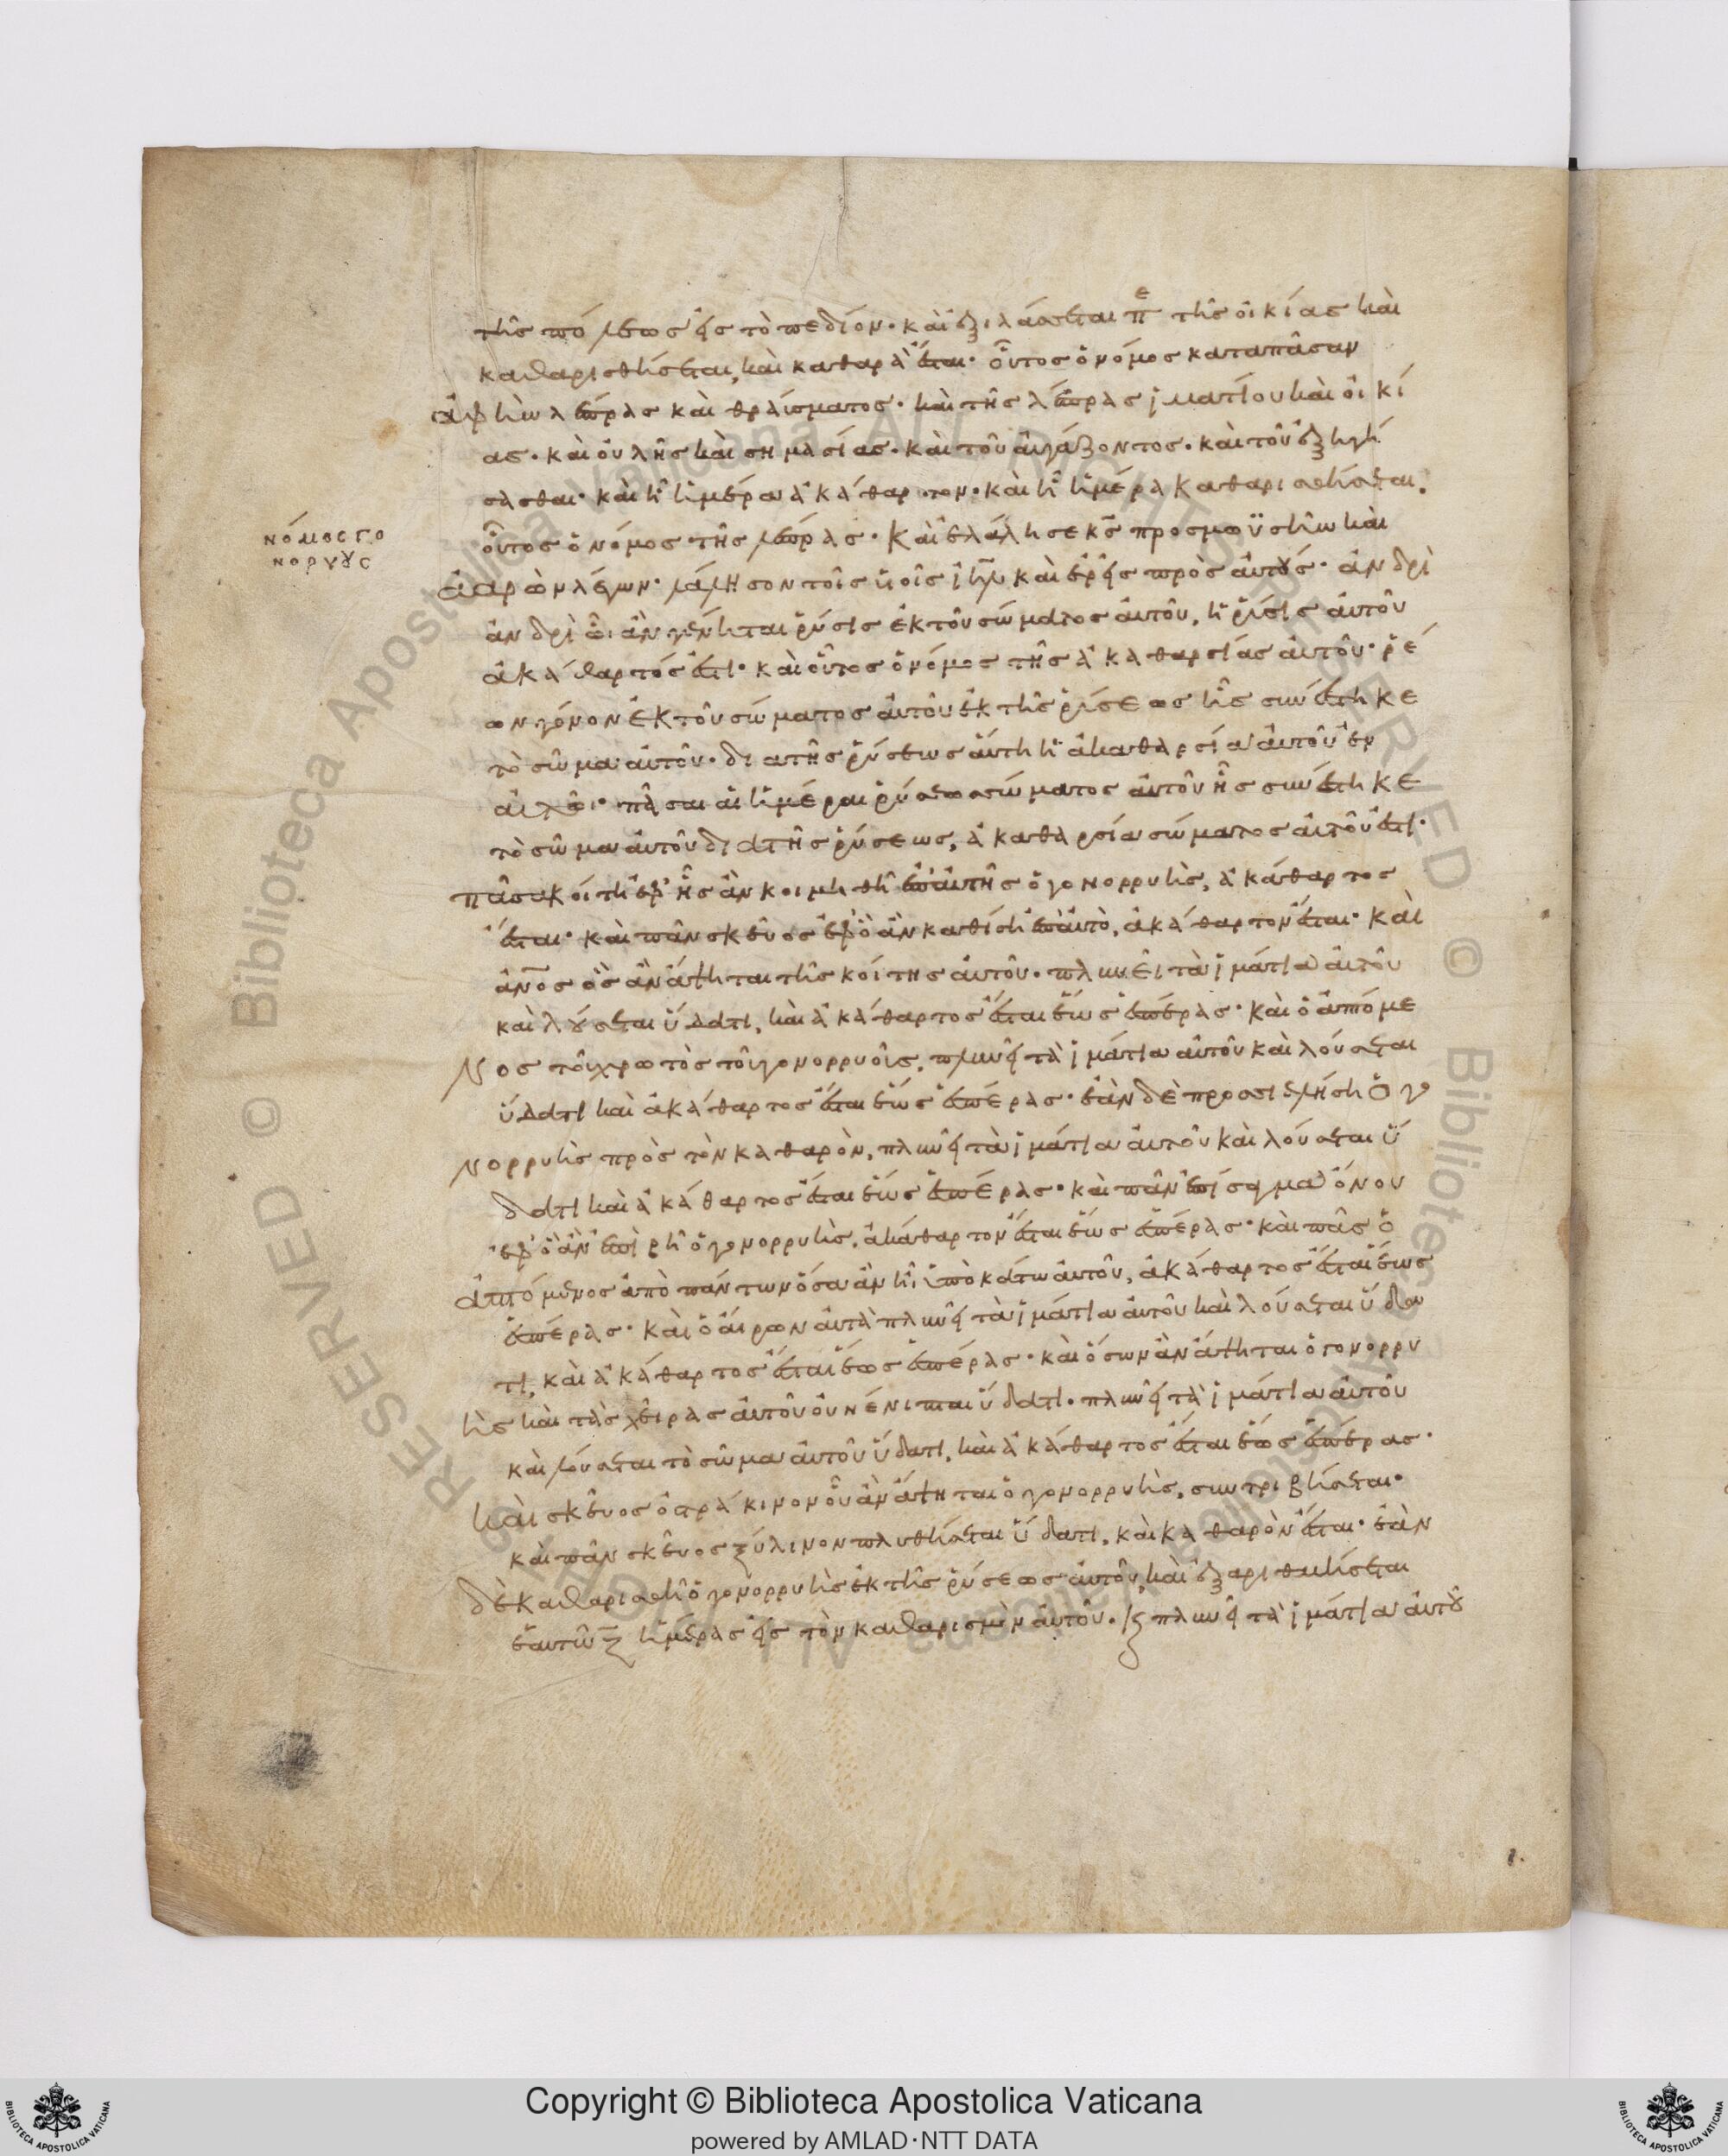 τῆς πόλεως εἰς τὸ πεδίον· καὶ ἐξιλάσεται πε τῆς οἰκίας καὶ
καθαρισθήσεται, καὶ καθαρὰ ἔσται· οὗτος ὁ νόμος κατα πᾶσαν
ἁφὴν λέπρας καὶ θραύσματος· καὶ τῆς λέπρας ἱματίου καὶ οἰκί
ας· καὶ οὐλῆς καὶ σημασίας· καὶ τοῦ αὐγάζοντος· καὶ τοῦ ἐξηγή
σασθαι· καὶ ἧ ἡμέρα ἀκάθαρτον· καὶ ἧ ἡμέρα καθαρισθήσεται.
οὗτος ὁ νόμος τῆς λέπρας· Καὶ ἐλάλησε κς προς μωϋσῆν καὶ
ἀαρὼν λέγων· λάλησον τοῖς υἱοῖς ιηλ καὶ ἐρεῖς πρὸς αὐτούς· ἀνδρὶ
ἀνδρὶ ὧι ἂν γένηται ῥύσις ἐκ τοῦ σώματος αὐτοῦ, ἡ ῥύσις αὐτοῦ
ἀκάθαρτός ἐστι· καὶ οὗτος ὁ νόμος τῆς ἀκαθαρσίας αὐτοῦ· ῥέ
ων γόνον ἐκ τοῦ σώματος αὐτοῦ ἐκ τῆς ῥύσεως ἧς συνέστηκε
τὸ σῶμα αὐτοῦ· δια τῆς ῥύσεως αὕτη ἡ ἀκαθαρσία αὐτοῦ ἐν
αὐτῶι· πᾶσαι αἱ ἡμέραι ῥύσεως σώματος αὐτοῦ ἧς συνέστηκε
τὸ σῶμα αὐτοῦ δια τῆς ῥύσεως, ἀκαθαρσία σώματος αὐτοῦ ἐστι·
πᾶσα κοίτη ἐφ' ἧς ἂν κοιμηθῆ ἐπ' αὐτῆς ὁ γονορρυὴς, ἀκάθαρτος
ἔσται· καὶ πᾶν σκεῦος ἐφ' ὃ ἂν καθίση ἐπ' αὐτὸ, ἀκάθαρτον ἔσται· καὶ
ἀνος ὃς ἂν ἅψηται τῆς κοίτης αὐτοῦ· πλυνεῖ τὰ ἱμάτια αὐτοῦ
καὶ λούσεται ὕδατι, καὶ ἀκάθαρτος ἔσται ἕως ἑσπέρας· καὶ ὁ ἁπτόμε
νος τοῦ χρωτὸς τοῦ γονορρυοῦς, πλυνεῖ τὰ ἱμάτια αὐτοῦ καὶ λούσεται
ὕδατι καὶ ἀκάθαρτος ἔσται ἕως ἑσπέρας· ἐὰν δὲ προσσιελήση ὁ γο
νορρυὴς πρὸς τὸν καθαρὸν, πλυνεῖ τὰ ἱμάτια αὐτοῦ καὶ λούσεται ὕ
δατι καὶ ἀκάθαρτος ἔσται ἕως ἑσπέρας· καὶ πᾶν ἐπίσαγμα ὄνου
ἐφ' ὃ ἂν ἐπιβῆ ὁ γονορρυὴς, ἀκάθαρτον ἔσται ἕως ἑσπέρας· καὶ πᾶς ὁ
ἁπτόμενος ἀπὸ πάντων ὅσα ἂν ἧ ὑποκάτω αὐτοῦ, ἀκάθαρτος ἔσται ἕως
ἑσπέρας· καὶ ὁ αἴρων αὐτὰ πλυνεῖ τὰ ἱμάτια αὐτοῦ καὶ λούσεται ὕδα
τι, καὶ ἀκάθαρτος ἔσται ἕως ἑσπέρας· καὶ ὅσων ἂν ἅψηται ὁ γονορρυ
ὴς καὶ τὰς χεῖρας αὐτοῦ οὐ νένιπται ὕδατι· πλυνεῖ τὰ ἱμάτια αὐτοῦ
καὶ λούσεται τὸ σῶμα αὐτοῦ ὕδατι, καὶ ἀκάθαρτος ἔσται ἕως ἑσπέρας·
καὶ σκεῦος ὀστράκινον οὗ ἂν ἅψηται ὁ γονορρυὴς, συντριβήσεται·
καὶ πᾶν σκεῦος ξύλινον πλυθήσεται ὕδατι, καὶ καθαρὸν ἔσται· ἐὰν
δὲ καθαρισθῆ ὁ γονορρυὴς ἐκ τῆς ῥύσεως αὐτοῦ, καὶ ἐξαριθμήσεται
ἑαυτῶ ζ ἡμέρας εἰς τὸν καθαρισμὸν αὐτοῦ· κ πλυνεῖ τὰ ἱμάτια αὐτοῦ
νόμος γο
νορυοῦς
Copyright © Biblioteca Apostolica Vaticana
powered by AMLAD·NTT DATA